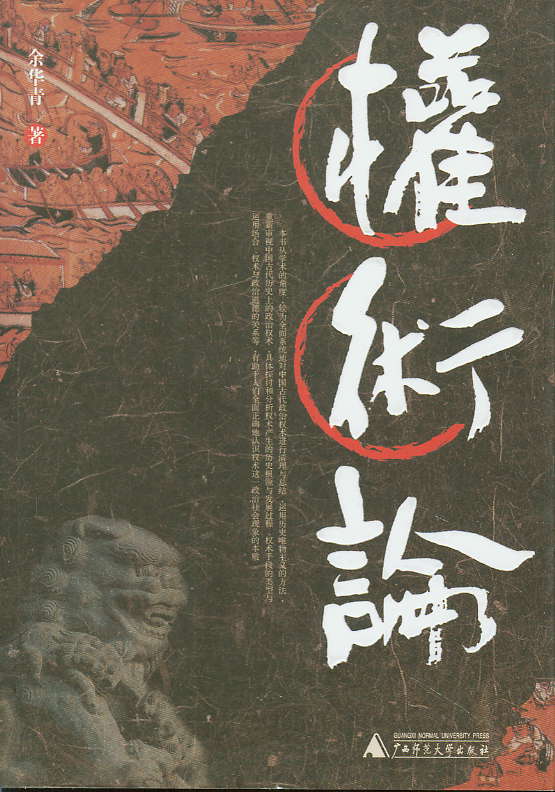 權術論
余华青 著
本书从学术的角度，较为全面系统地对中国古代政治权术进行清理与总结，运用历史唯物主义的方法，
重新审视中国古代历史上的政治权术，具体探讨和分析权术产生的历史根源与发展过程、权术手段的类型与
运用场合、权术与政治道德的关系等，有助于人们全面正确地认识权术这一政治社会现象的本质。
GUANGXI NORMAL UNIVERSITY PRESS
广西师范大学出版社